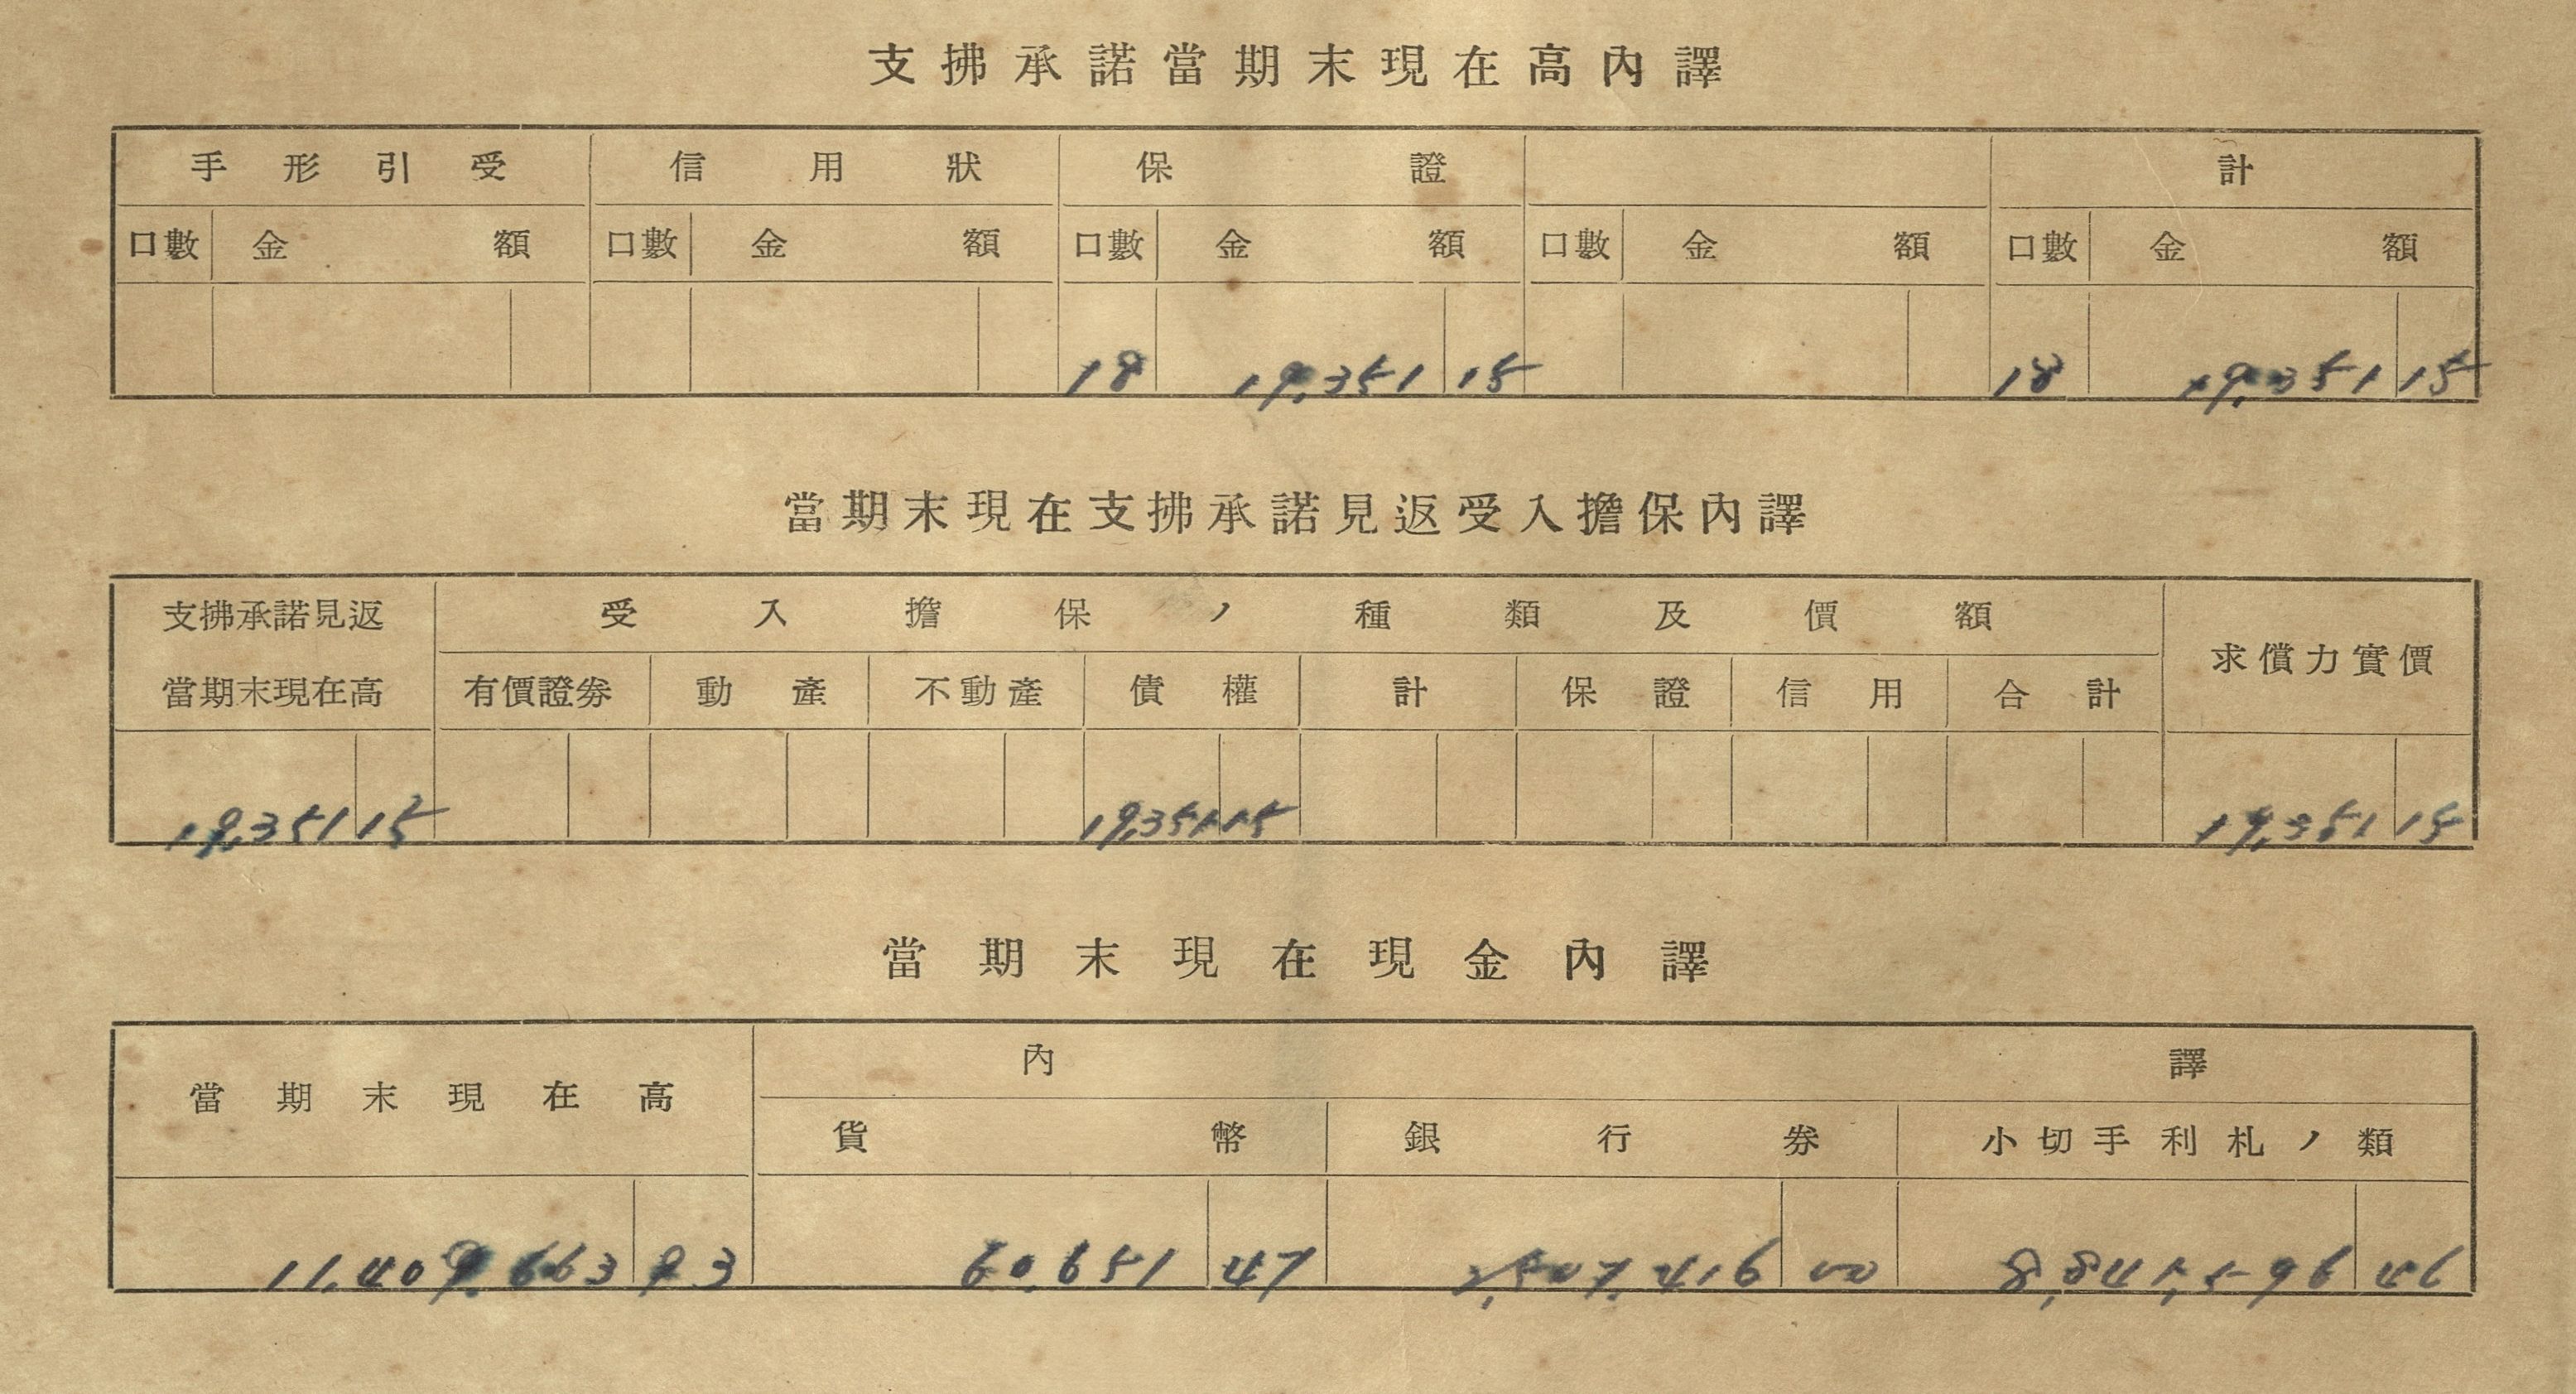 支拂承諾當期末現在高內譯
手形引受 信用狀 保證 計
口數 金額 口數 金額 口數 金額 口數 金額 口數 金額
18 19,351 15 18 19,351 15
當期末現在支拂承諾見返受入擔保內譯
支拂承諾見返 受入擔保ノ種類及價額
當期末現在高 有價證券 動產 不動產 債權 計 保證 信用 合計 求償力實價
19,351 15 19,351 15 19,351 15
當期末現在現金內譯
當期末現在高 內譯
貨幣 銀行券 小切手利札ノ類
11,409,663 93 60,651 47 2,507,416 00 8,841,596 46